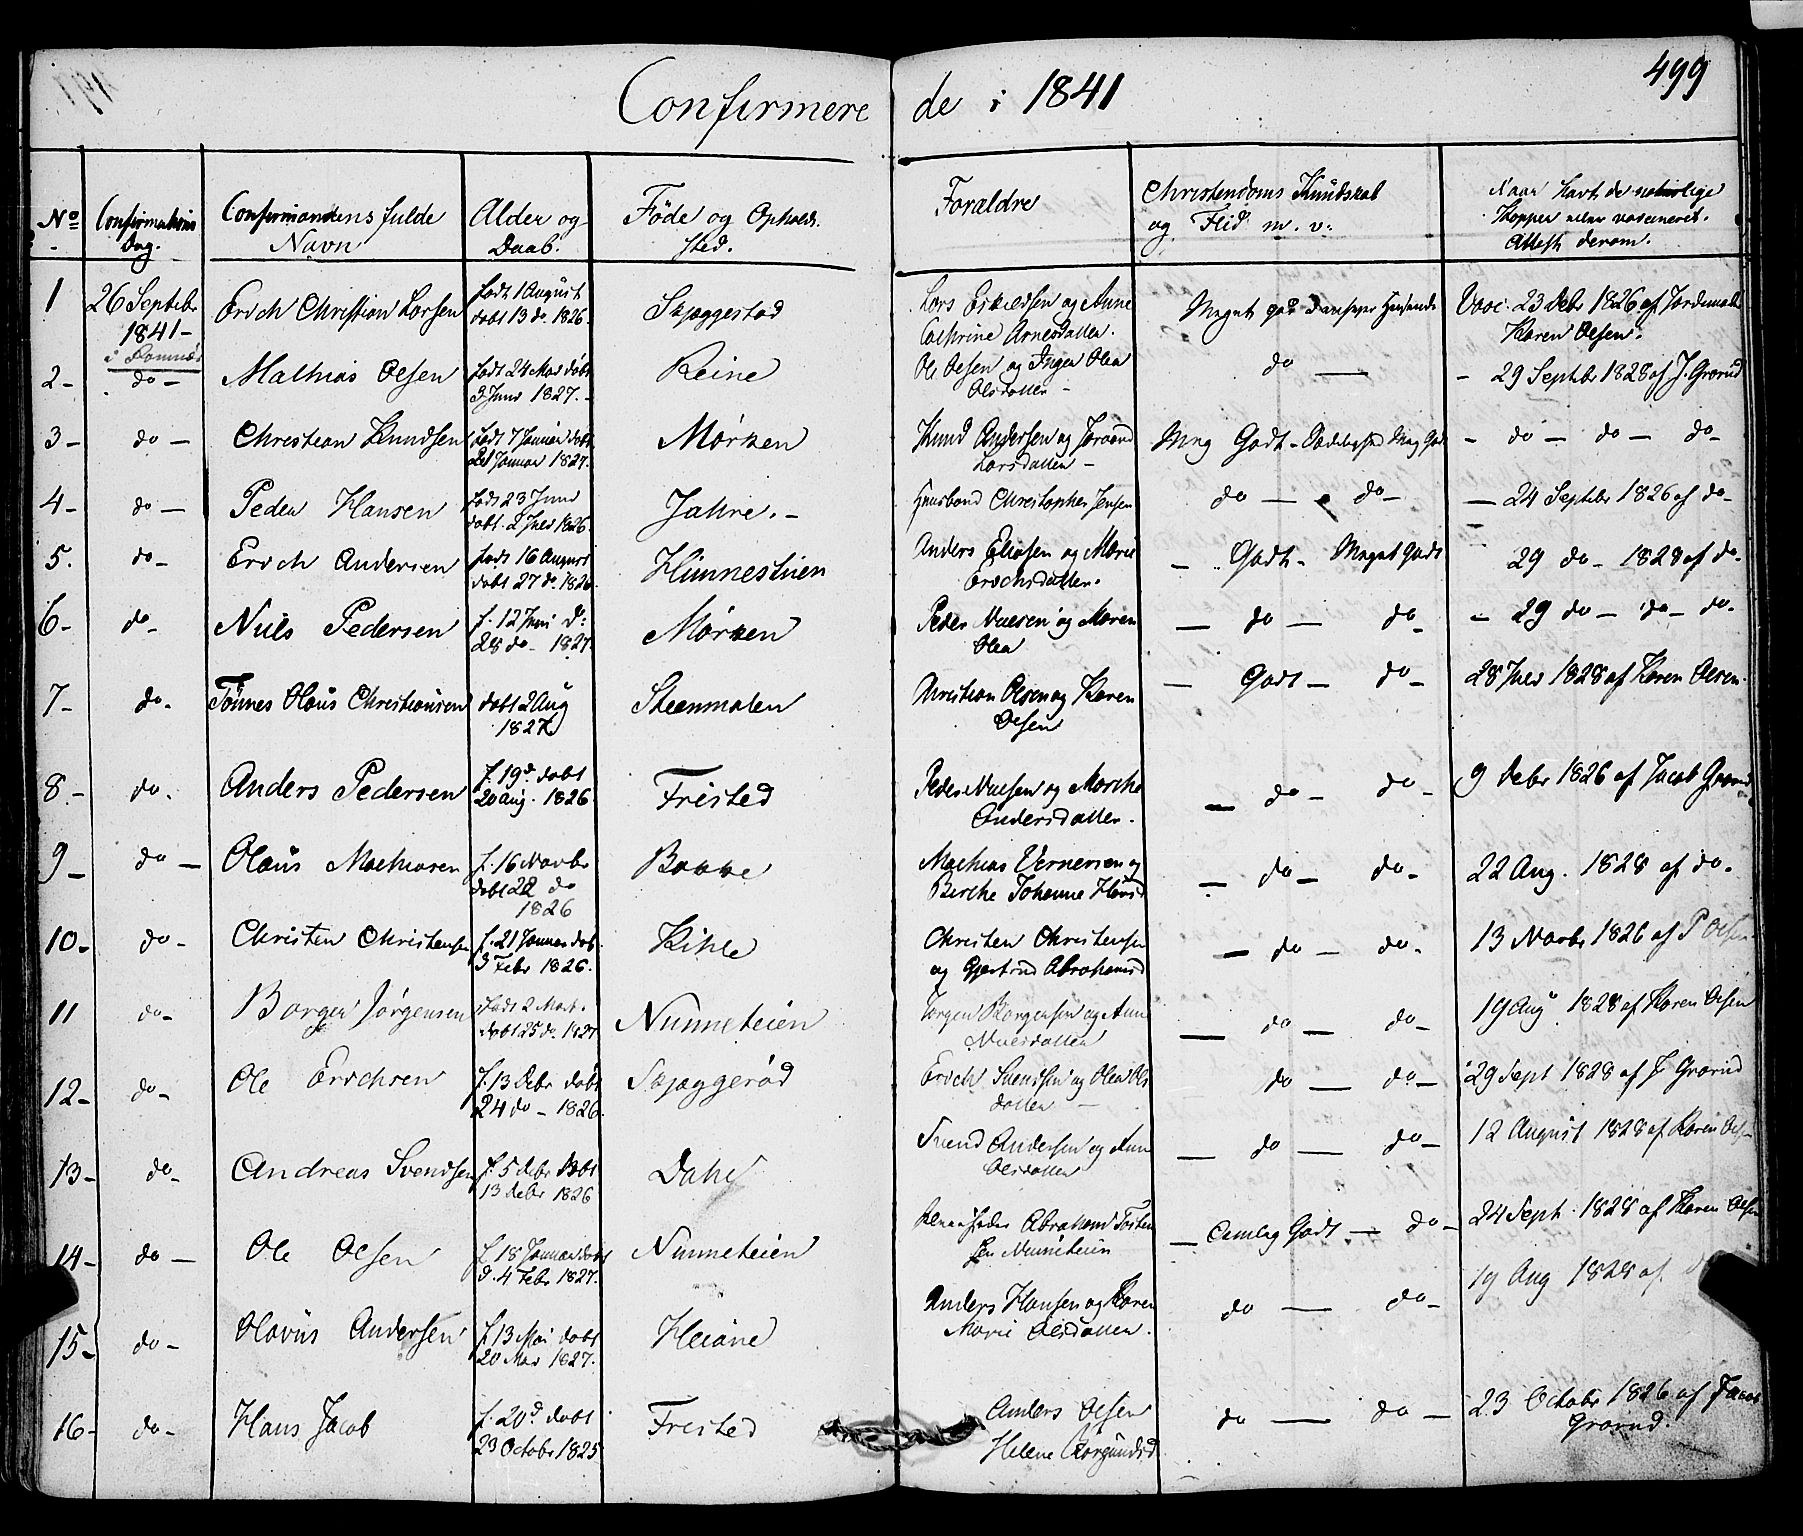 Confirmerede i 1841
499
No
Confirmations Dag.
Confirmandens fulde Navn
Alder og Daab.
Föde og Opholdssted.
Foraldre
Christendoms Kundskab og Flid m. v:
Naar havt de naturlige Kopper eller vaccineret. Attest derom.
1
26 Septebr 1841 -
Erich Christian Larsen
født 1 August døbt 13 do. 1826.
Skjaggestad
Lars Eskedsen og Anne Cathrine Arnesdatter.
Meget godt
Vacc. 23 Debr 1826 af Jordemoder Karen Olsen.
2 -
do -
Mathias Olsen
født 24 Mai døbt 3 Juni 1827. -
Reine
Ole Olsen og Inger Olea Olsdatter -
do —
- 29 Septebr 1828 af J. Grorud
3 -
do -
Christian Knudsen
født 7 Januar døbt 21 Januar 1827.
Mörken
Knud Andersen og Larsdatter -
Meg Godt - Meg Godt
- do - do - do -
4 -
do —
Peder Hansen
født 23 Juni døbt 2 Juli 1826.
Jahre. -
Huusbond Christopher Jensen
do — do -
— 24 Septebr 1826 af do -
5.
do -
Erich Andersen
født 16 August døbt 27 do. 1826
Himnestvien
Anders Eliasen og Marie Erichsdatter.
- Godt - Meget Godt
29 do - 1828 af do -
6 -
do -
Niels Pedersen
f. 12 Juni d: 28 do - 1827.
Mörken
Peder Nielsen og Maren Olea
— do — do -
- 29 do - do - do -
7 -
do -
Tönnes Olaus Christiansen
døbt 2 Aug 1827
Steenmalen
Christian Olsen og Karen Olsen
— Godt - do -
28 Juli 1828 af Karen Olsen.
8. -
do.
Anders Pedersen
f. 19d. døbt 20 Aug. 1826
Fristed
Peder Nielsen og Marthe Andersdatter.
— do - do -
9 Debr 1826 af Jacob Grorud
9 -
do —
Olaus Mathiasen
f. 16 Novbr døbt 22 do 1826
Bakke
Mathias Vernersen og Berthe Johanne Hansd
— do - do -
22 Aug. 1828 af do -
10 -
do -
Christen Christensen
f. 21 Januar døb. 3 Febr 1826.
Kihle
Christen Christensen og Gjertrud Abrahamsd
— do — do -
13 Novbr 1826 af P Olsen
11
do -
Borger Jørgensen
født 2 Mart. døbt 25 do. 1827
Nunneteien
Jørgen Borgersen og Ann Nielsdatter
— do — do -
19 Aug 1828 af Karen Olsen
12 -
do -
Ole Erichsen
f. 13 Debr døbt 24 do - 1826.
Skjaggerød
Erich Svendsen og Olea Olsdatter —
do — do -
29 Sept 1828 af J Grorud
13 -
do -
Andreas Svendsen
f. 5 Debr døbt 13 Debr 1826
Dahl
Svend Andersen og Ann Olsdatter
— do — do -
12 August 1828 af Karen Ols
14 -
do —
Ole Olsen
f. 18 Januar døbt d. 4 Febr 1827.
Nunneteien
Abraham Torstensen Nunneteien
— Godt — do -
24 Sept. 1828 af Karen Olsen
15 -
do -
Olavus Andersen
f. 13 Mai døbt 20 Mai 1827.
Heiane
Anders Hansen og Karen Marie Olsdatter.
do — do -
19 Aug 1828 af
16 -
do -
Hans Jacob
f. 20d. døbt 23 Octobr 1825
Fristed
Anders Olsen Helene
do — do -
23 Octobr 1826 af Jacob Grorud.